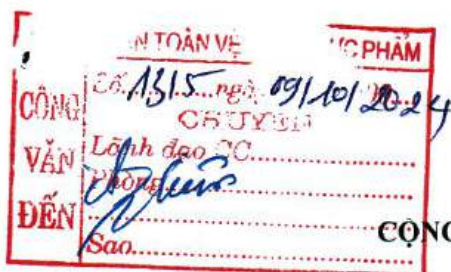 N TOÀN VỆ ỰC PHẨM
CÔNG VĂN ĐẾN
Số 1315 ngày 09/10/2024
CHUYỂN
Lãnh đạo CC
Phòng
Sao
CỘNG